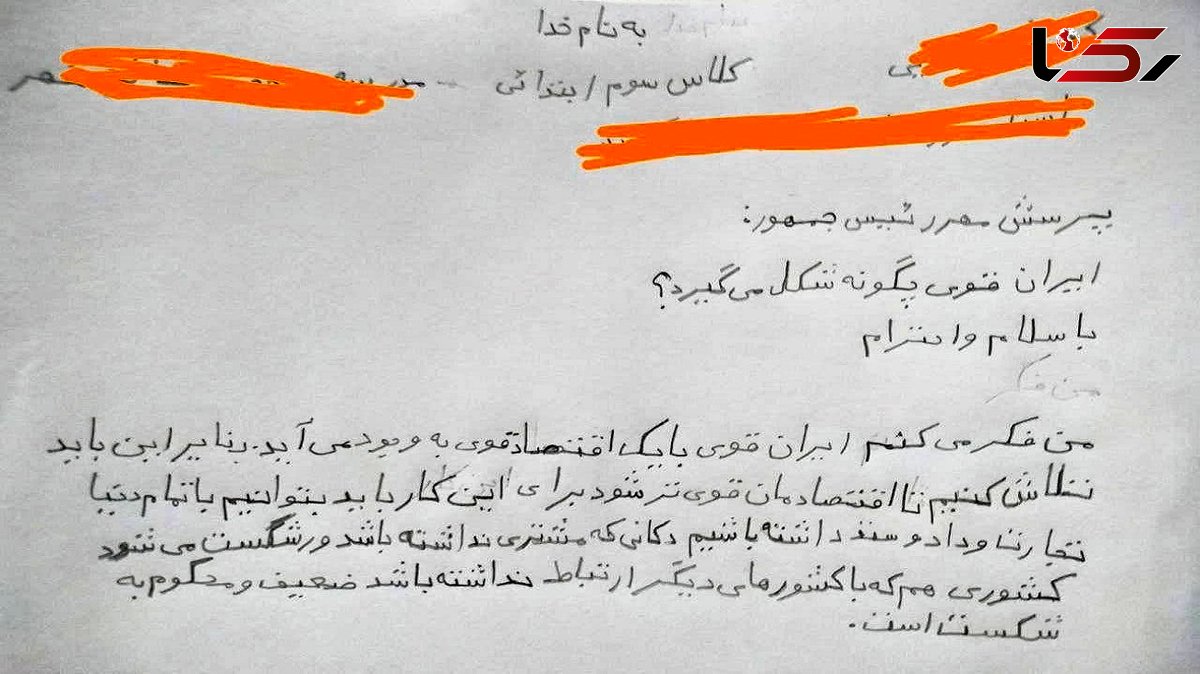 به نام خدا
رکنا
کلاس سوم ابتدائی - مدرسه
پرسش مهر رئیس جمهور:
ایران قوی چگونه شکل می‌گیرد؟
با سلام و احترام
من فکر
من فکر می کنم ایران قوی با یک اقتصاد قوی به وجود می آید. بنابراین باید
تلاش کنیم تا اقتصادمان قوی تر شود برای این کار باید بتوانیم با تمام دنیا
تجارت و داد و ستد داشته باشیم دکانی که مشتری نداشته باشد ورشکست می شود
کشوری هم که با کشورهای دیگر ارتباط نداشته باشد ضعیف و محکوم به
شکست است.